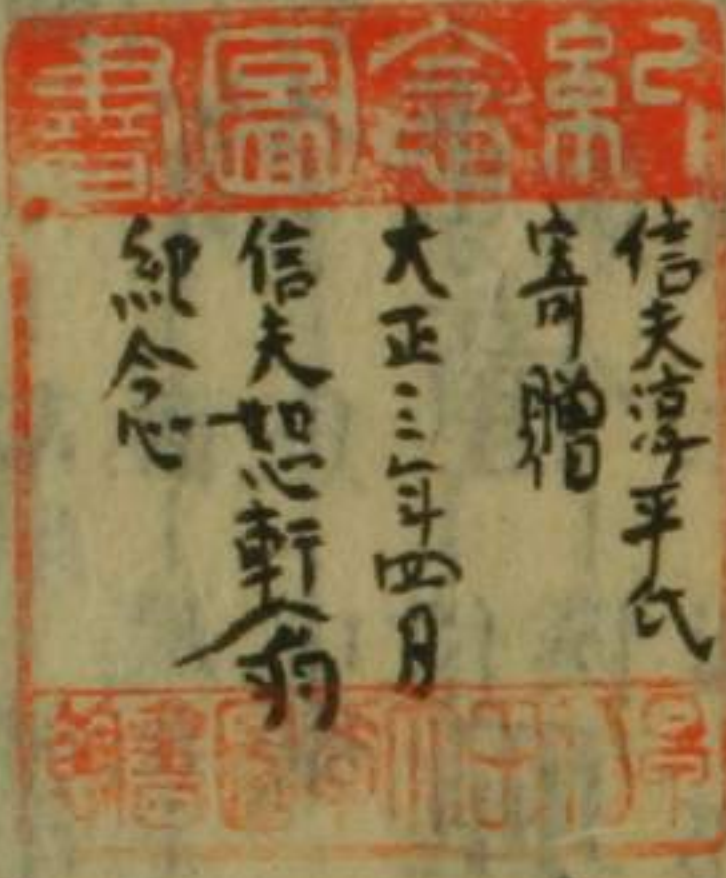 紀念圖書
信夫淳平氏
寄贈
大正三年四月
信夫恕軒翁
紀念